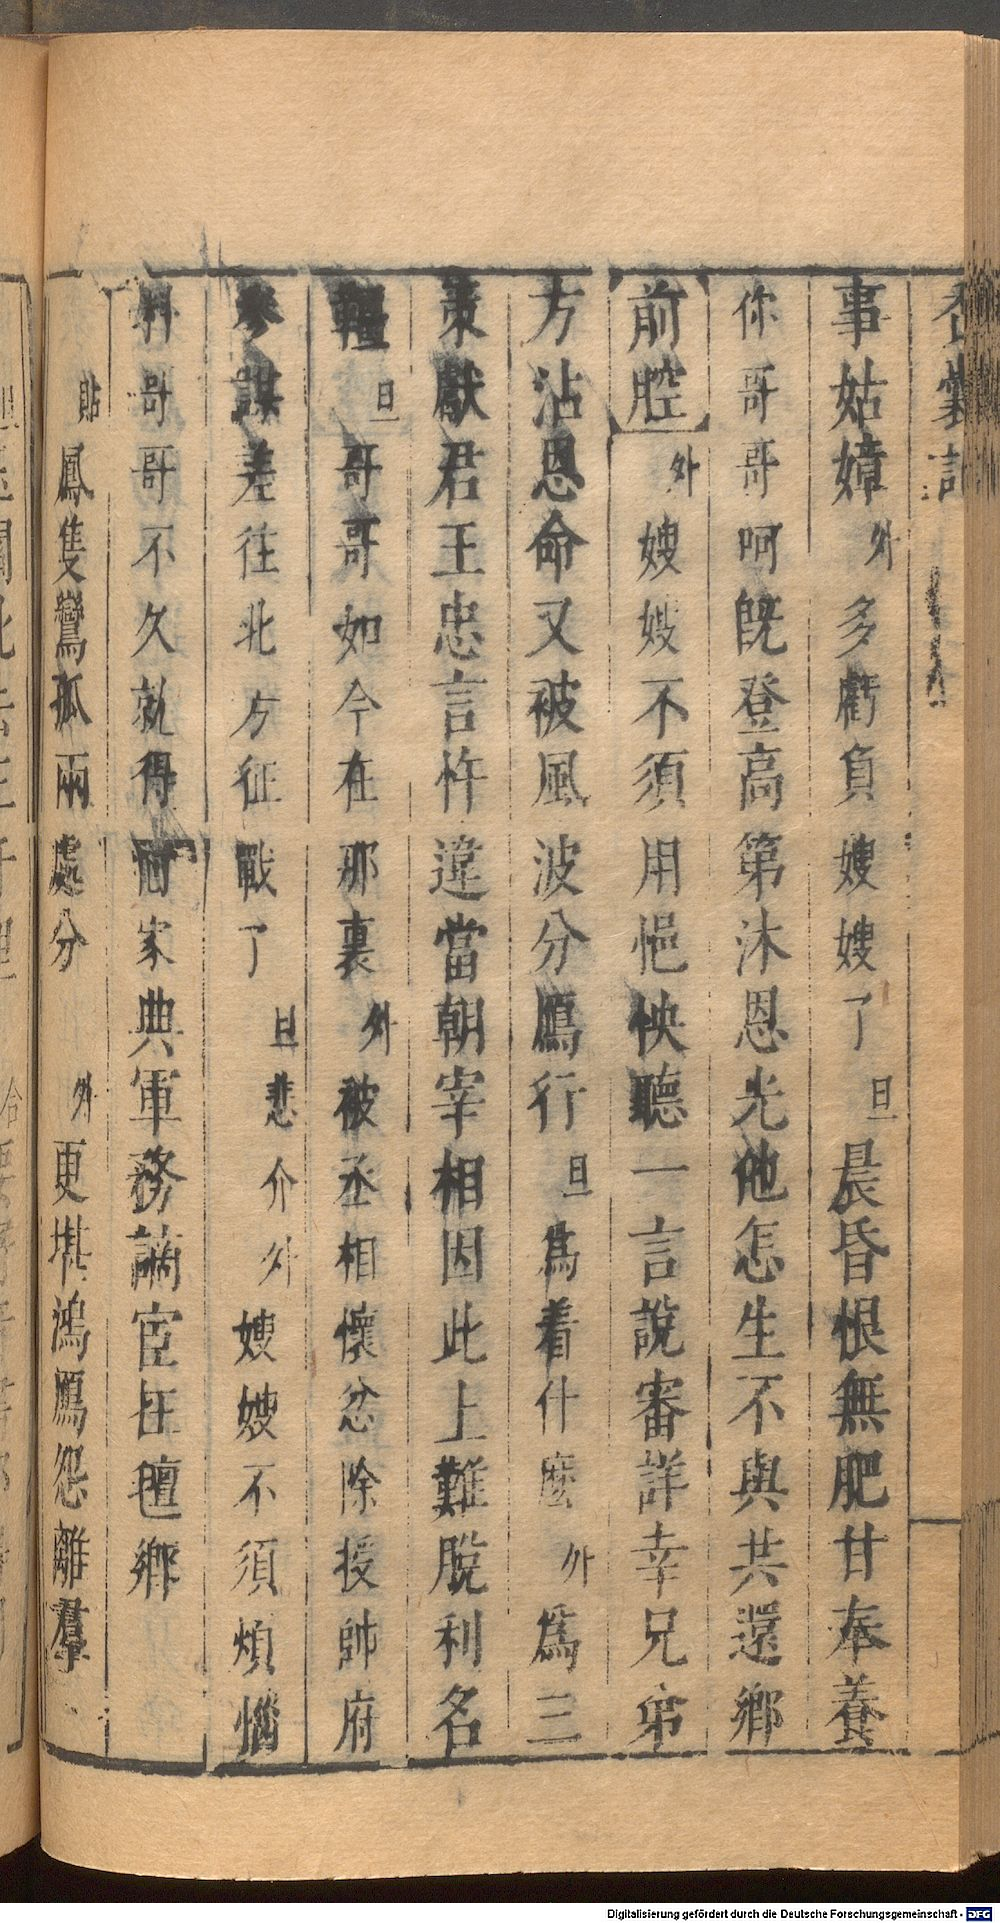 香囊記
事姑嫜外多虧負嫂嫂了旦晨昏恨無肥甘奉養
你哥哥呵既登高第沐恩光他怎生不與共還鄉
前腔外嫂嫂不須用悒怏聽一言說審詳幸兄弟
方沾恩命又被風波分鴈行旦為着什麼外為三
策獻君王忠言忤違當朝宰相因此上難脫利名
韁旦哥哥如今在那裏外被丞相懷忿除授帥府
參謀差往北方征戰了旦悲介外嫂嫂不須煩惱
料哥哥不久就得回家典軍務謫宦在氊鄉
貼鳳隻鸞孤兩處分外更堪鴻鴈怨離羣
Digitalisierung gefördert durch die Deutsche Forschungsgemeinschaft - DFG